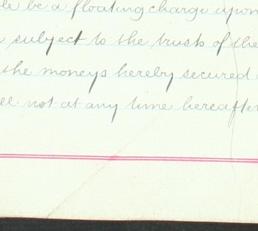 be a floating charge upon
subject to the trusts of the
the moneys hereby secured
not at any time hereafter